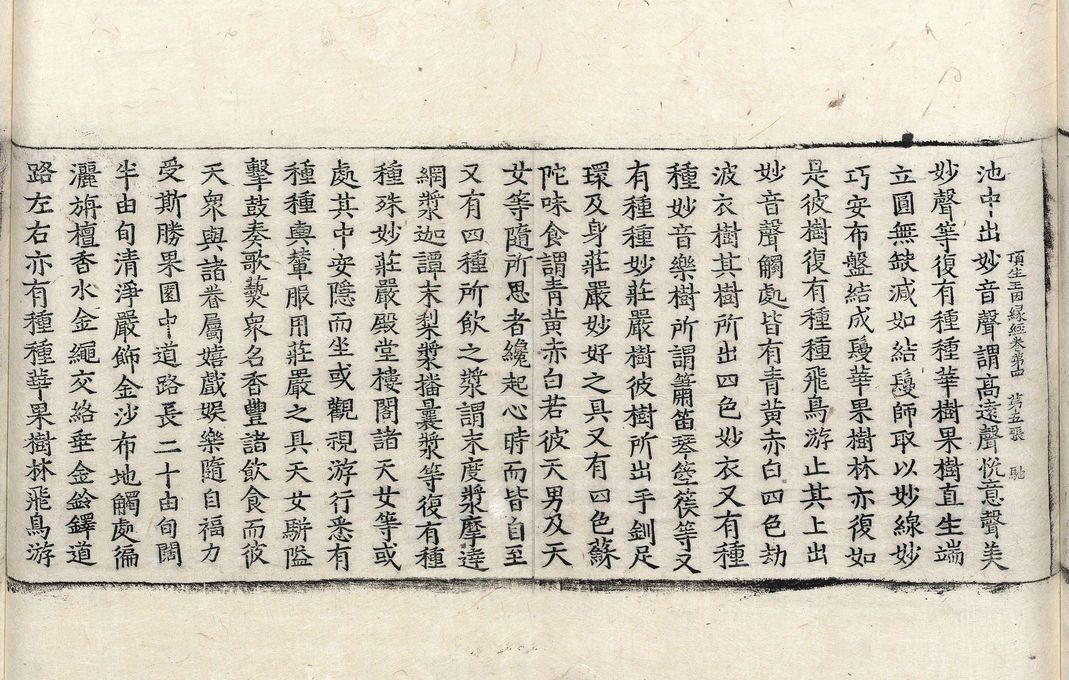 頂生王因緣經卷第四 第五張 馳
池中出妙音聲謂高遠聲悅意聲美
妙聲等復有種種華樹果樹直生端
立圓無缺減如結鬘師取以妙線妙
巧安布盤結成鬘華果樹林亦復如
是彼樹復有種種飛鳥游止其上出
妙音聲觸處皆有青黃赤白四色劫
波衣樹其樹所出四色妙衣又有種
種妙音樂樹所謂簫笛琴箜篌等又
有種種妙莊嚴樹彼樹所出手釧足
環及身莊嚴妙好之具又有四色蘇
陀味食謂青黃赤白若彼天男及天
女等隨所思者纔起心時而皆自至
又有四種所飲之漿謂末度漿摩達
網漿迦譚末梨漿播曩漿等復有種
種殊妙莊嚴殿堂樓閣諸天女等或
處其中安隱而坐或觀視游行悉有
種種輿輦服用莊嚴之具天女駢隘
擊鼓奏歌爇衆名香豐諸飲食而彼
天衆與諸眷屬嬉戲娛樂隨自福力
受斯勝果園中道路長二十由旬闊
半由旬清淨嚴飾金沙布地觸處徧
灑旃檀香水金繩交絡垂金鈴鐸道
路左右亦有種種華果樹林飛鳥游